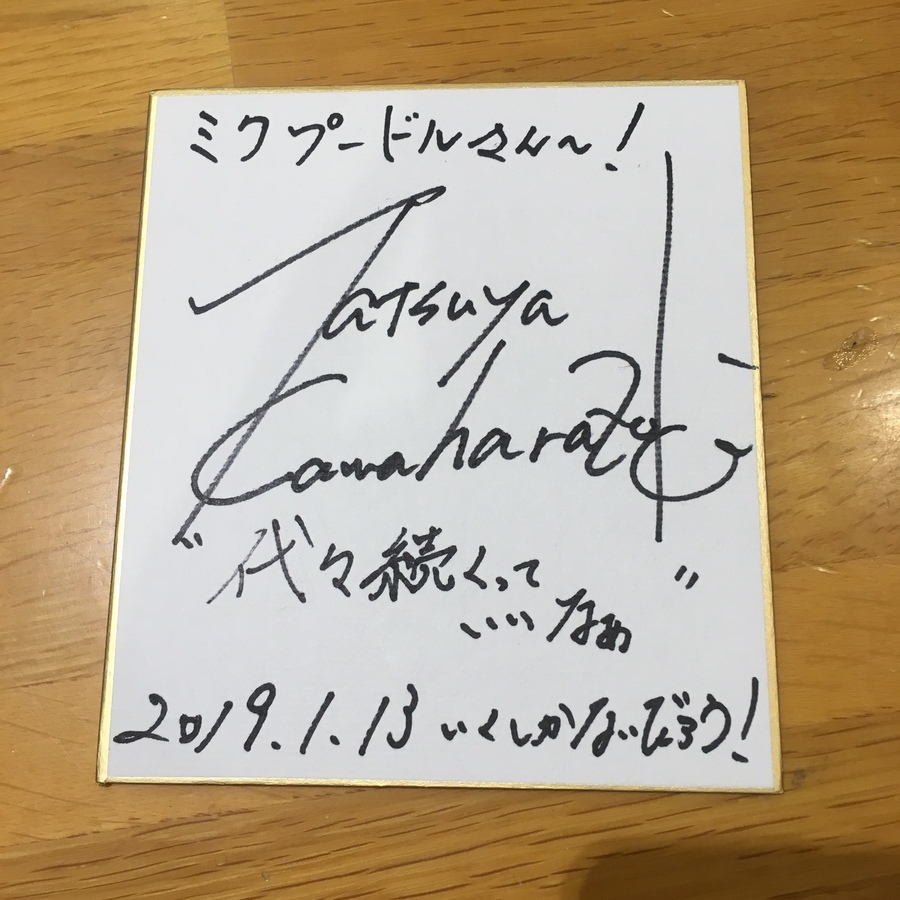 ミクプードルさん〜!
Tatsuya
Kawahara
"代々続くって
いいなぁ"
2019.1.13 いくしかないだろう!